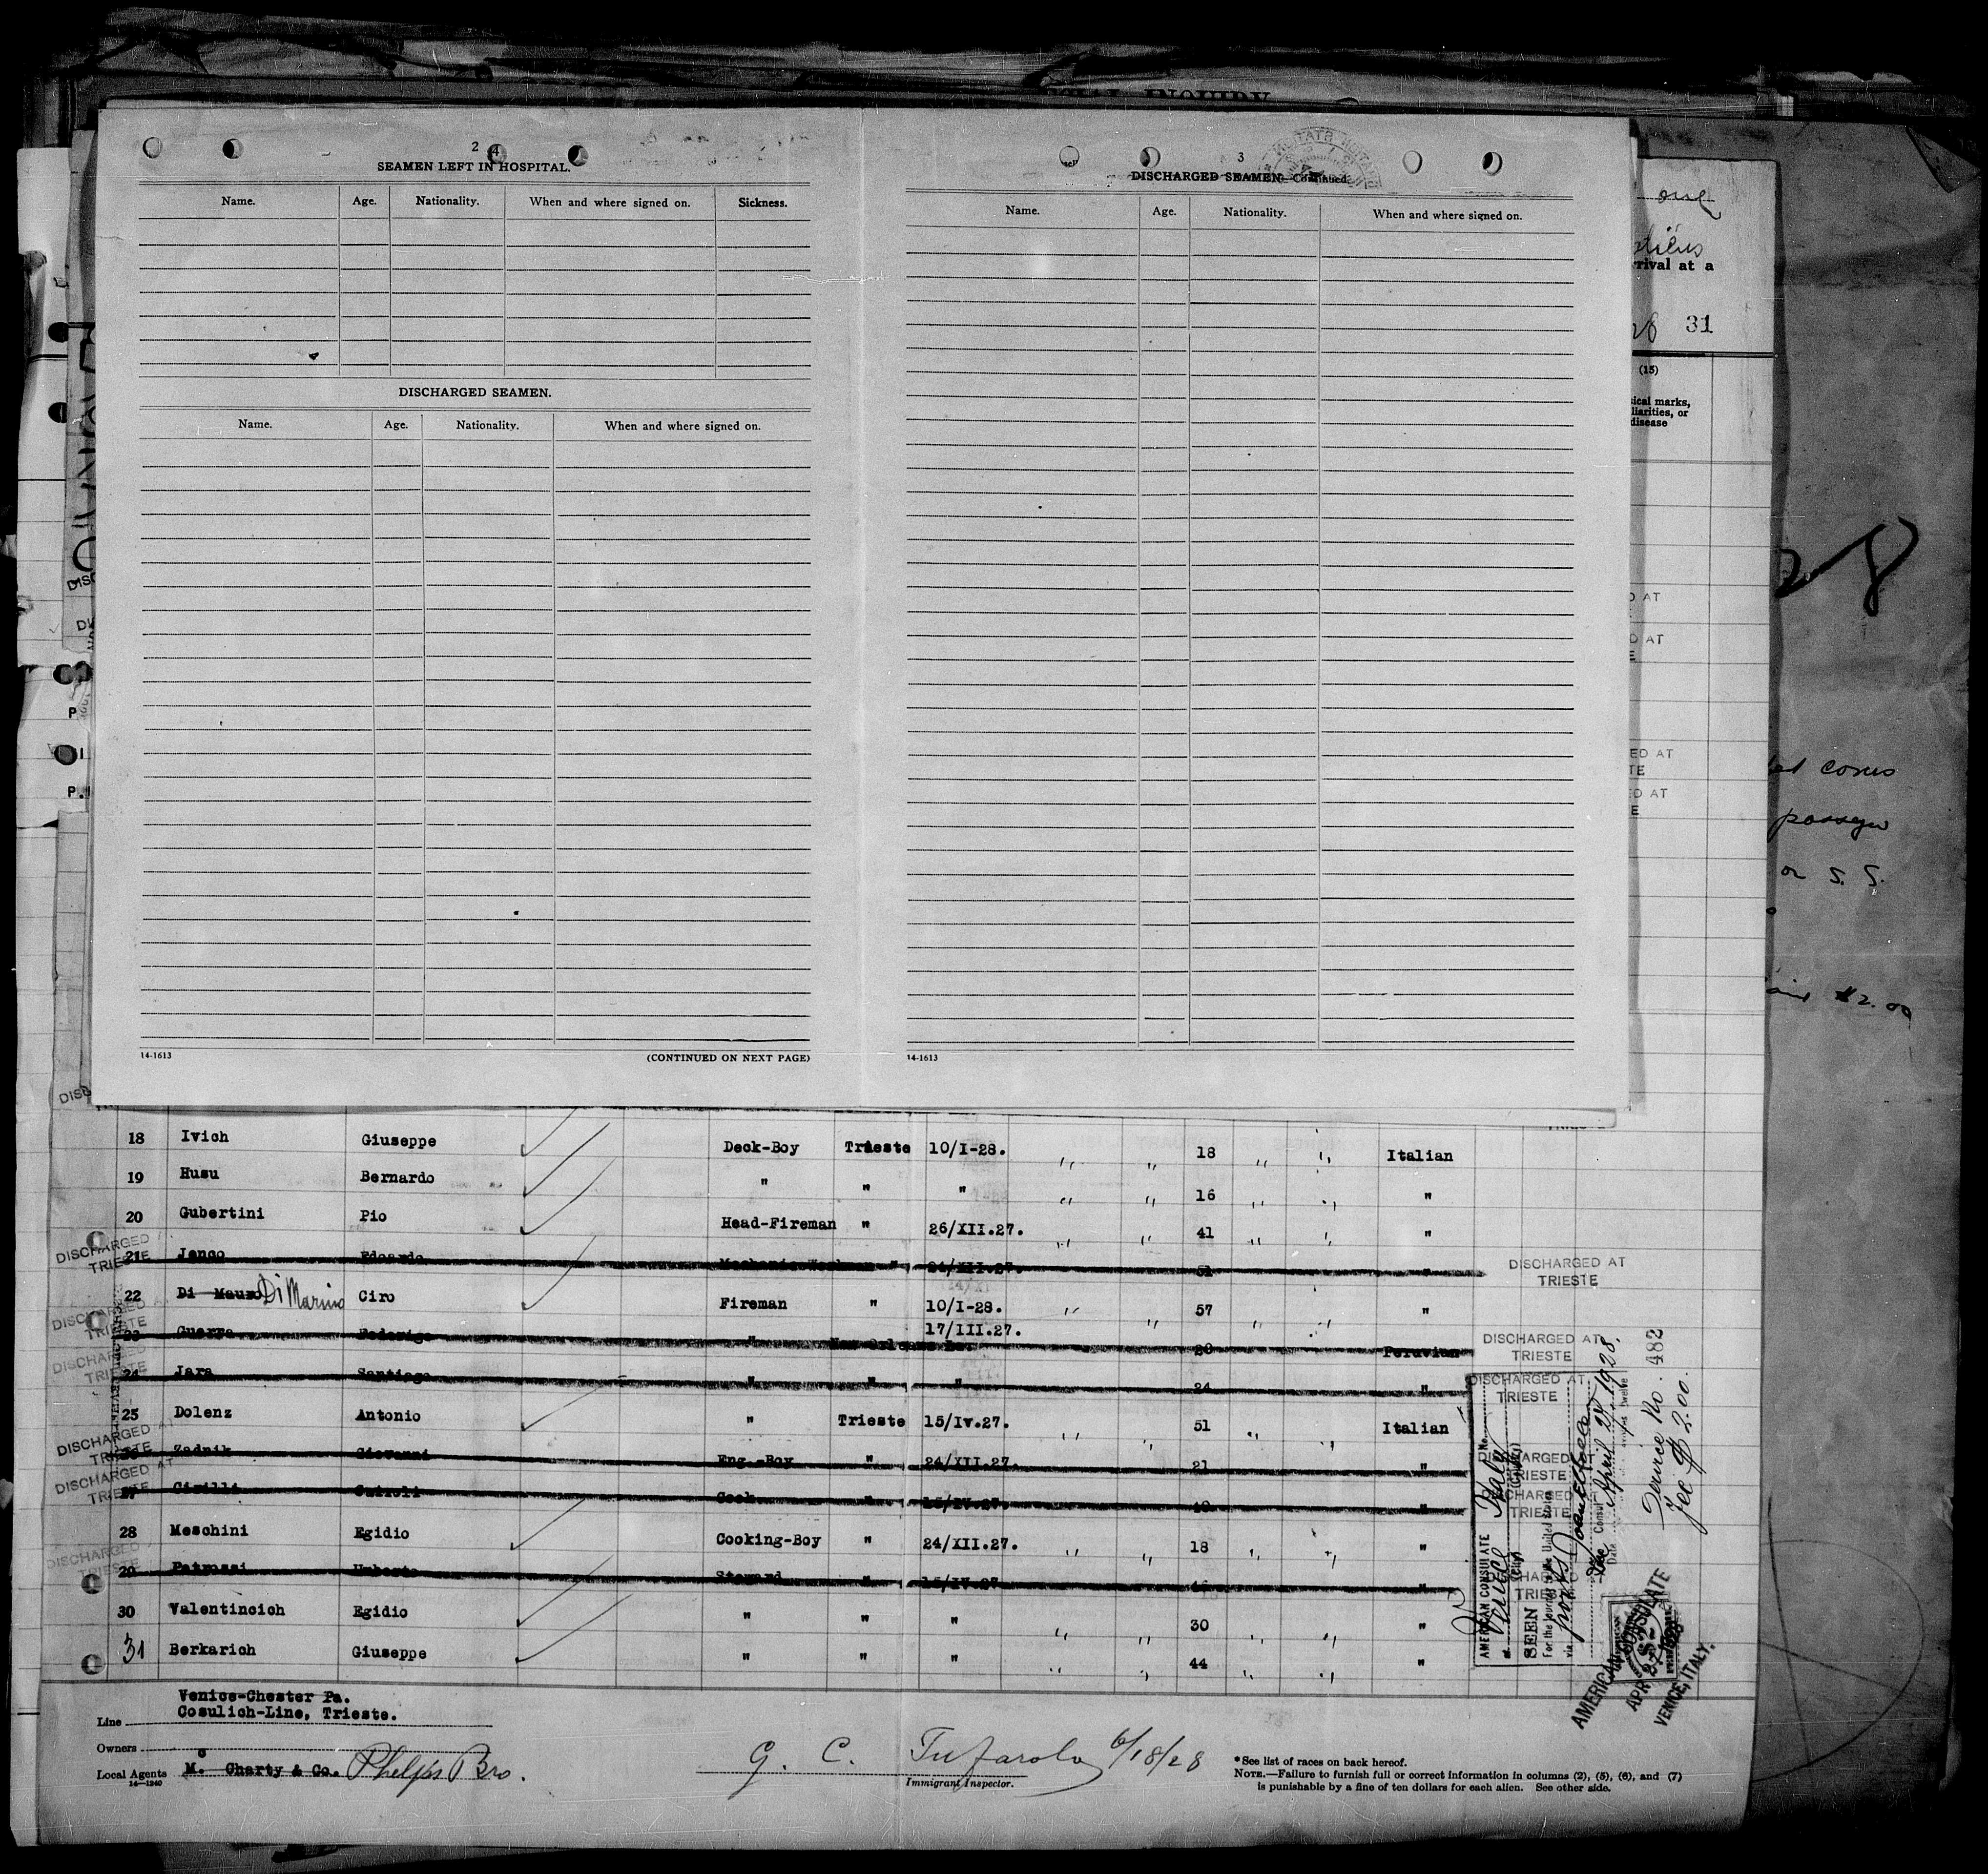 2 4
SEAMEN LEFT IN HOSPITAL.
Name. Age. Nationality. When and where signed on. Sickness.
DISCHARGED SEAMEN.
Name. Age. Nationality. When and where signed on.
14-1613 (CONTINUED ON NEXT PAGE)
3
DISCHARGED SEAMEN—Continued.
Name. Age. Nationality. When and where signed on.
14-1613
one
rival at a
31
(15)
ical marks,
liarities, or
disease
passgr
or S. S.
$2.00
18 Ivich Giuseppe Deck-Boy Trieste 10/I-28. " " 18 " " Italian
19 Husu Bernardo " " " " " 16 " " "
20 Gubertini Pio Head-Fireman " 26/XII.27. " " 41 " " "
DISCHARGED AT TRIESTE 21 Jenco Edoardo " 24/XII.27. 51 " DISCHARGED AT TRIESTE
22 Di Mauro Di Marino Ciro Fireman " 10/I-28. " " 57 " " "
DISCHARGED AT TRIESTE 23 Guerra Federigo " New Orleans La. 17/III.27. 20 Peruvian DISCHARGED AT TRIESTE
DISCHARGED AT TRIESTE 24 Jara Santiago " " " 24 " DISCHARGED AT TRIESTE
25 Dolenz Antonio " Trieste 15/Iv.27. " " 51 " " Italian
DISCHARGED AT TRIESTE 26 Zadnik Giovanni Eng.-Boy " 24/XII.27. 21 " DISCHARGED AT TRIESTE
DISCHARGED AT TRIESTE 27 Cirilli Cook " 15/IV.27. " DISCHARGED AT TRIESTE
28 Meschini Egidio Cooking-Boy " 24/XII.27. " " 18 " " "
DISCHARGED TRIESTE 29 Patrossi Umberto Steward " 15/IV.27 " DISCHARGED TRIESTE
30 Valentincich Egidio " " " " " 30 " " "
31 Berkarich Giuseppe " " " " " 44 " " "
AMERICAN CONSULATE
at Venice Italy
(City) (Country)
SEEN
For the journey to the United States
via ports
Vice Consul
Date April 27, 1928.
Service No. 482
Fee $2.00.
AMERICAN CONSULATE
APR 27 1928
VENICE, ITALY.
Venice-Chester Pa.
Line Cosulich-Line, Trieste.
Owners
Local Agents Mc Charty & Co. Phelps Bro.
14-1240
G. C. Tufarolo 6/18/28
Immigrant Inspector.
*See list of races on back hereof.
NOTE.—Failure to furnish full or correct information in columns (2), (5), (6), and (7)
is punishable by a fine of ten dollars for each alien. See other side.